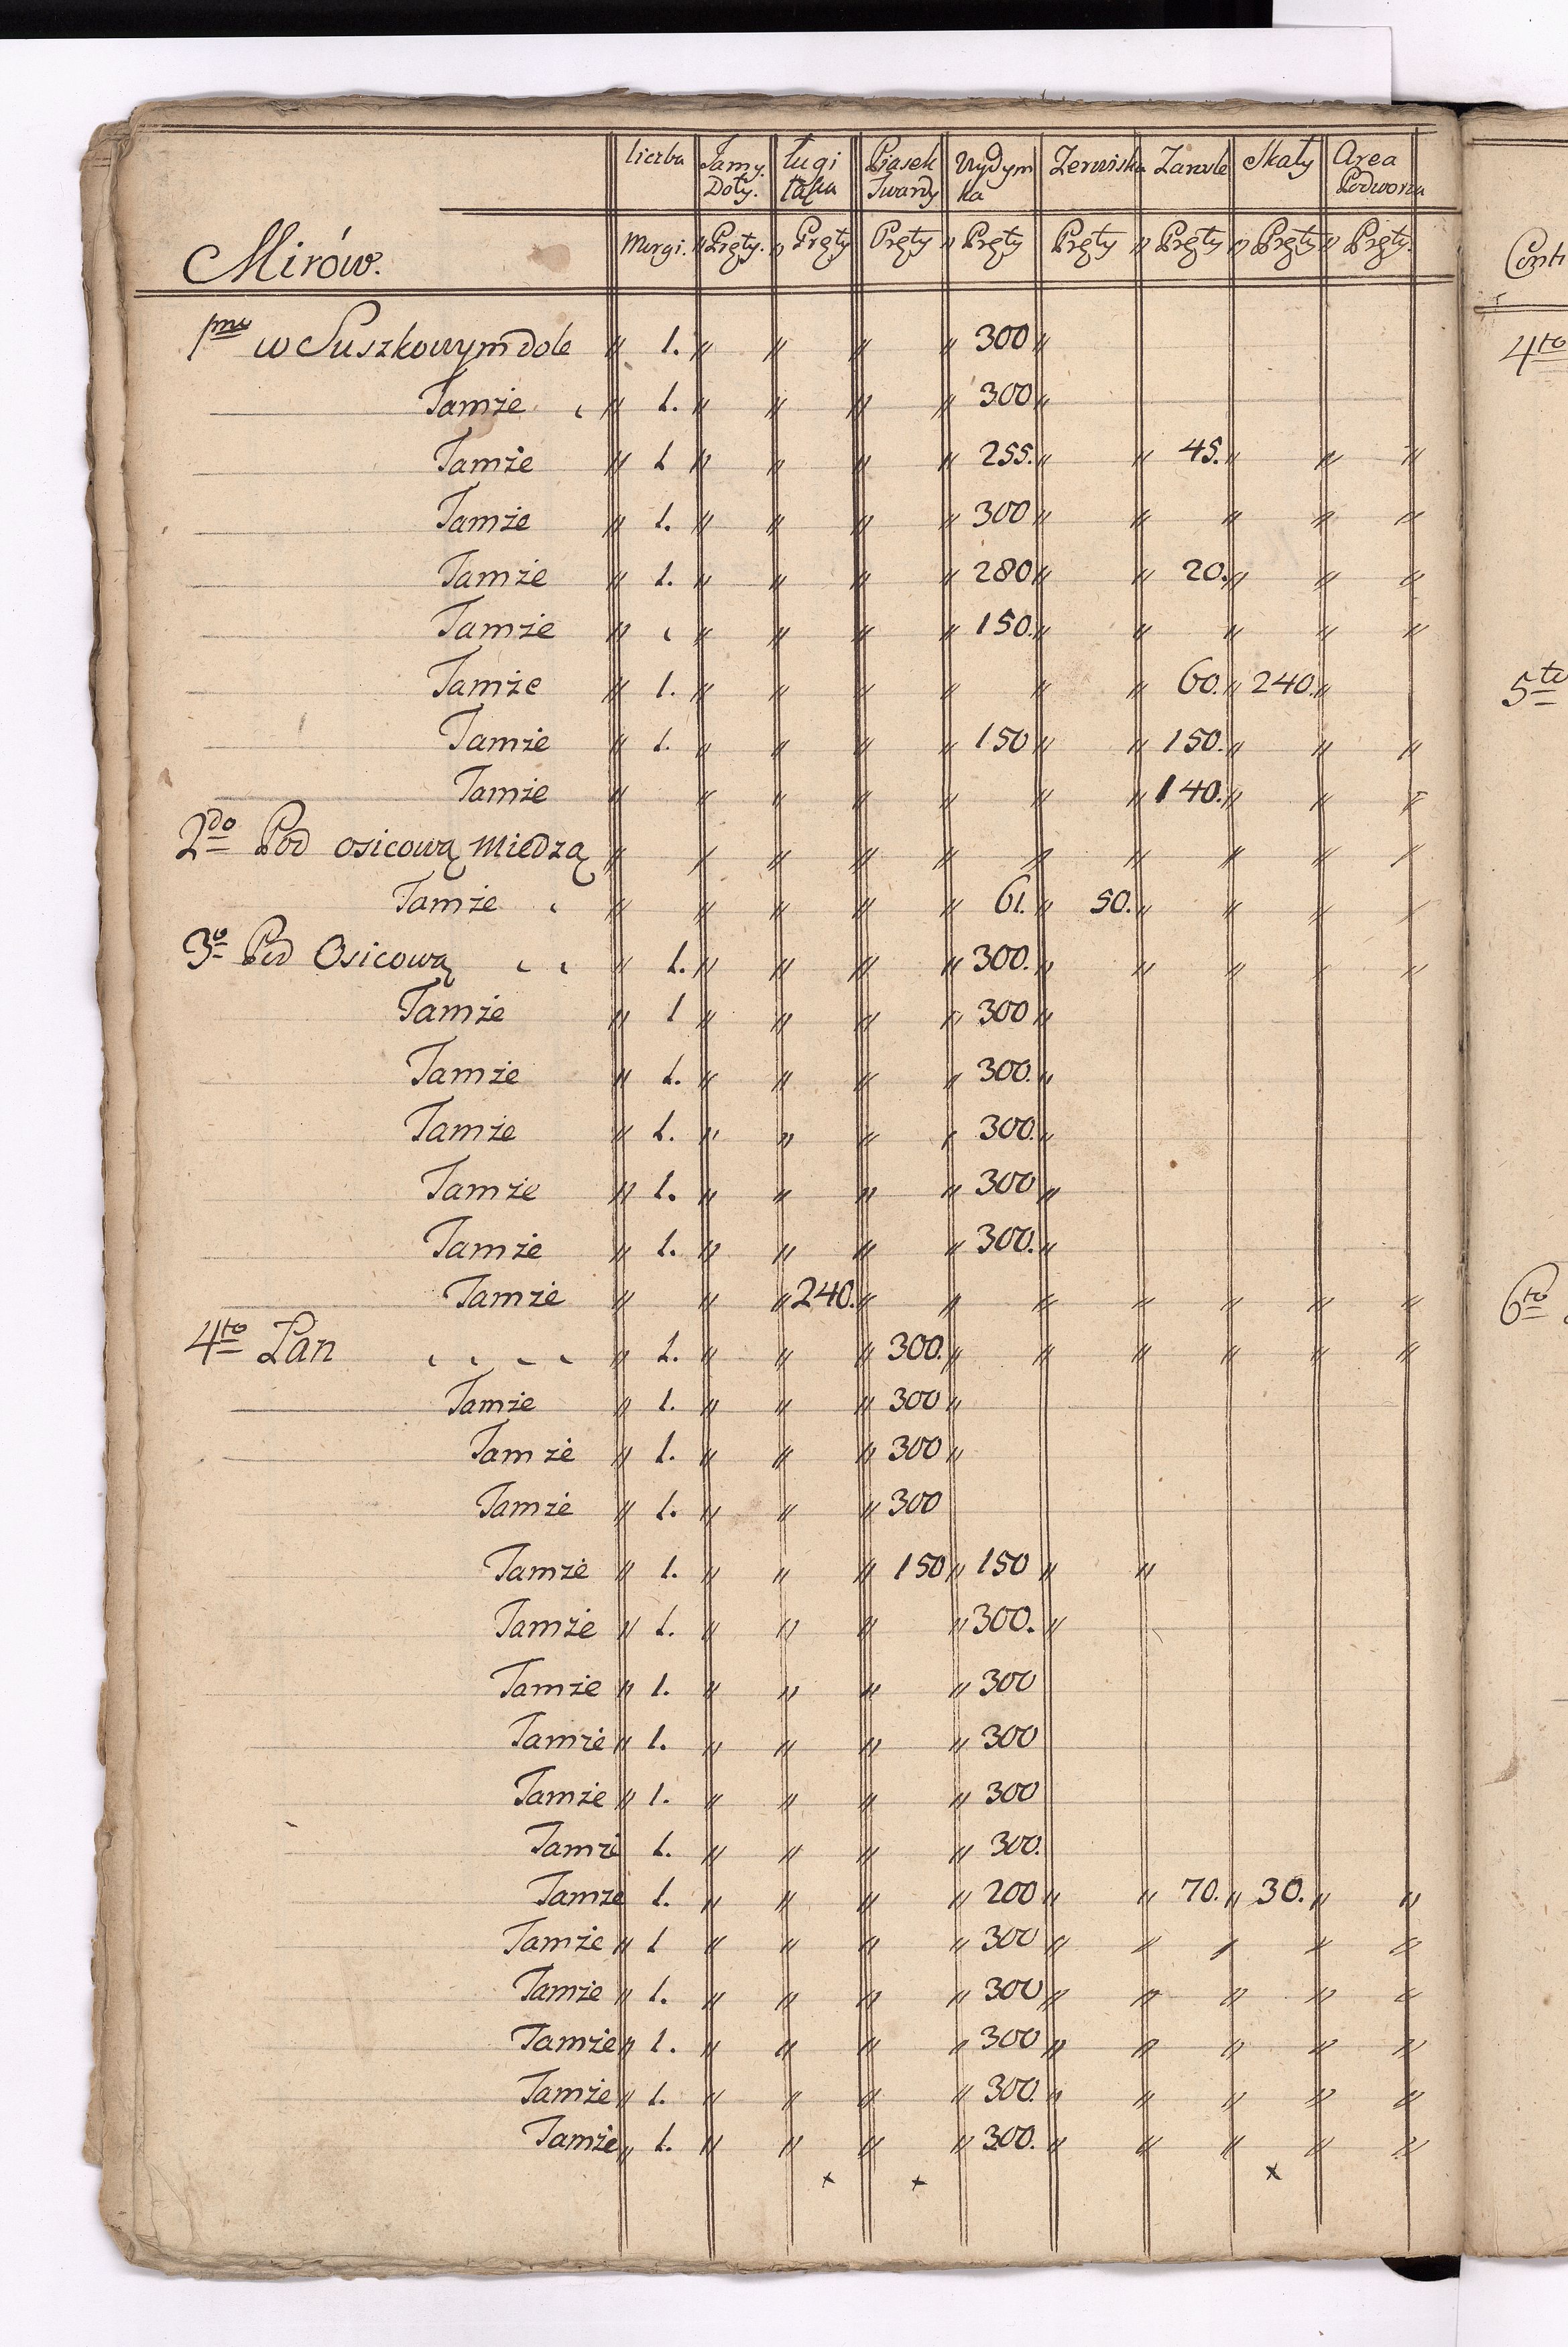 liczba Jamy. Ługi Piasek Wydym Zerwiska Zarosle Skały Area
Doły. łąka Twardy ka Podworza
Mirów. Morgi. " Pręty. " Pręty Pręty " Pręty Pręty " Pręty " Pręty " Pręty.
1mo w Suszkowym Dole " 1. " " " " 300 "
Tamże " 1. " " " " 300 "
Tamże " 1 " " " " 255. " " 45. " " "
Tamże " 1. " " " " 300 " " " " "
Tamże " 1. " " " " 280 " " 20. " " "
Tamże " " " " " 150. " " " " "
Tamże " 1. " " " " " " 60. " 240. "
Tamże " 1. " " " " 150 " " 150. " " "
Tamże " " " " " " " 140. " " "
2do Pod osicową miedzą " " " " " " " " " "
Tamże " " " " " 61. " 50. " " " "
3o Pod Osicową " 1. " " " " 300. " " " " "
Tamże " 1 " " " " 300 "
Tamże " 1. " " " " 300. "
Tamże " 1. " " " " 300. "
Tamże " 1. " " " " 300 "
Tamże " 1. " " " " 300. "
Tamże " " " 240. " " " " " " "
4to Łan " 1. " " " 300. " " " " " "
Tamże " 1. " " " 300 "
Tamże " 1. " " " 300 "
Tamże " 1. " " " 300
Tamże " 1. " " " 150 " 150 " "
Tamże " 1. " " " " 300. "
Tamże " 1. " " " " 300
Tamże " 1. " " " " 300
Tamże " 1. " " " " 300
Tamże 1. " " " " 300.
Tamże 1. " " " " 200 " " 70. " 30. " "
Tamże " 1 " " " " 300 " " " " "
Tamże " 1. " " " " 300 " " " " "
Tamże " 1. " " " " 300 " " " " "
Tamże " 1. " " " " 300. " " " " "
Tamże " 1. " " " " 300. " " " " "
x x x
4to
5to
6to